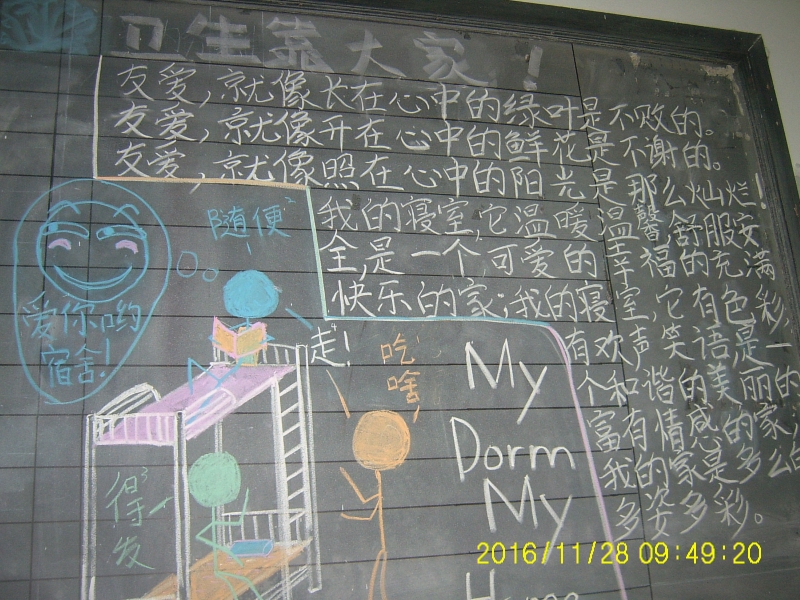 卫生靠大家！
友爱，就像长在心中的绿叶是不败的。
友爱，就像开在心中的鲜花是不谢的。
友爱，就像照在心中的阳光是那么灿烂！
我的寝室，它温暖温馨舒服安
全，是一个可爱的幸福的充满
快乐的家；我的寝室，它有色彩，
有欢声，笑语是一
个和谐的美丽的
富有情感的家
我的家是多么的
多姿多彩。
随便²
爱你哟
宿舍！
走⁴！
吃¹
啥，
得³
发
My
Dorm
My
Home
2016/11/28 09:49:20